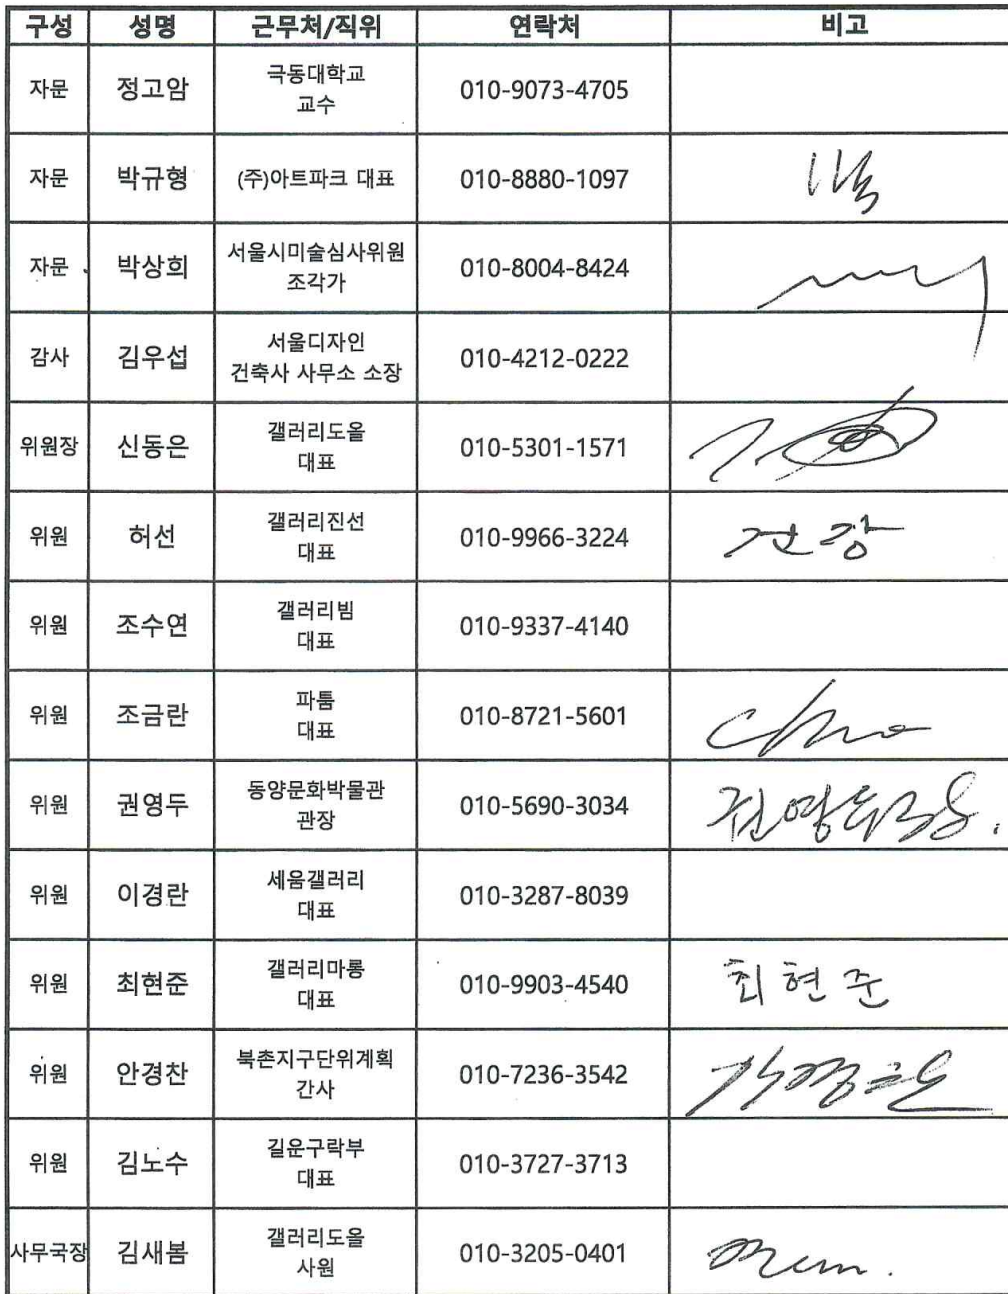 구성 성명 근무처/직위 연락처 비고
자문 정고암 극동대학교 교수 010-9073-4705
자문 박규형 (주)아트파크 대표 010-8880-1097
자문 박상희 서울시미술심사위원 조각가 010-8004-8424
감사 김우섭 서울디자인 건축사 사무소 소장 010-4212-0222
위원장 신동은 갤러리도올 대표 010-5301-1571
위원 허선 갤러리진선 대표 010-9966-3224
위원 조수연 갤러리빔 대표 010-9337-4140
위원 조금란 파툼 대표 010-8721-5601
위원 권영두 동양문화박물관 관장 010-5690-3034
위원 이경란 세움갤러리 대표 010-3287-8039
위원 최현준 갤러리마롱 대표 010-9903-4540 최현준
위원 안경찬 북촌지구단위계획 간사 010-7236-3542
위원 김노수 길운구락부 대표 010-3727-3713
사무국장 김새봄 갤러리도올 사원 010-3205-0401